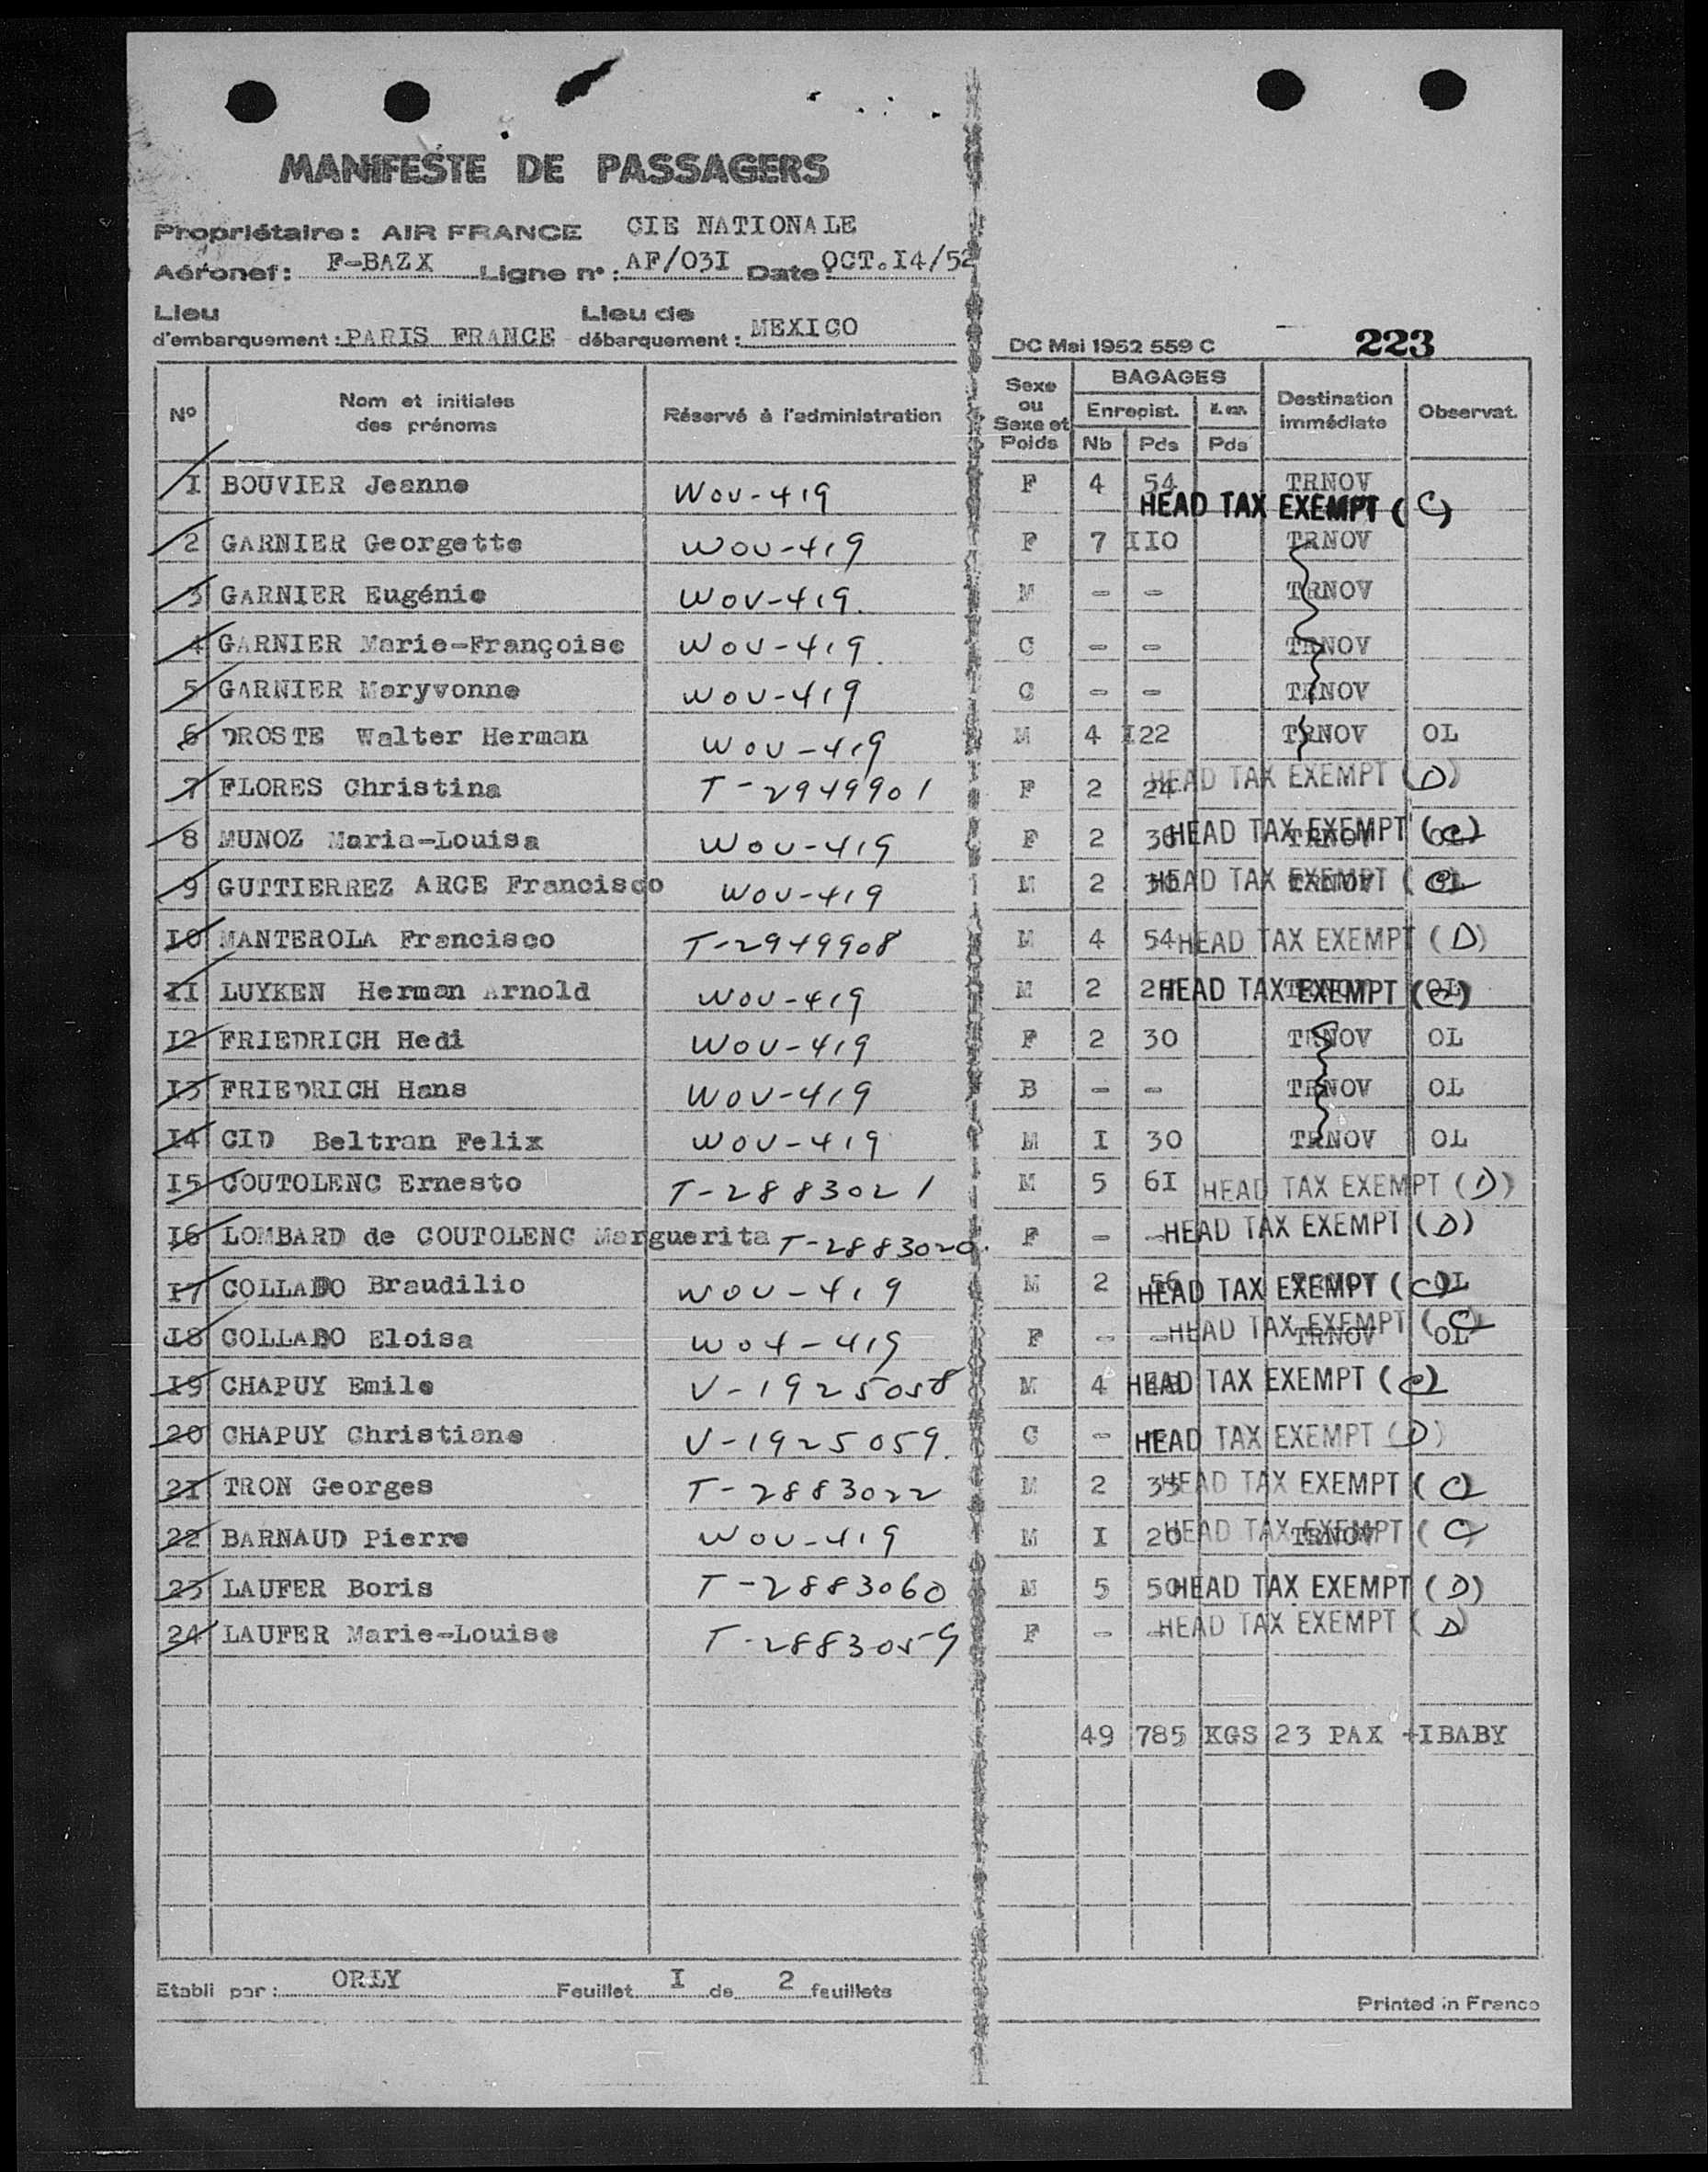 MANIFESTE DE PASSAGERS
Propriétaire : AIR FRANCE CIE NATIONALE
Aéronef : F-BAZX Ligne n° : AF/03I Date OCT.I4/52
Lieu d'embarquement : PARIS FRANCE Lieu de débarquement : MEXICO
DC Mai 1952 559 C 223
Nº Nom et initiales des prénoms Réservé à l'administration Sexe ou Sexe et Poids BAGAGES Enregist. Nb Pds Pds Destination immédiate Observat.
I BOUVIER Jeanne WOV-419 F 4 54 TRNOV HEAD TAX EXEMPT (C)
2 GARNIER Georgette WOV-419 F 7 II0 TRNOV
3 GARNIER Eugénie WOV-419. M - - TRNOV
4 GARNIER Marie-Françoise WOV-419. C - - TRNOV
5 GARNIER Maryvonne WOV-419 C - - TRNOV
6 DROSTE Walter Herman WOV-419 M 4 I22 TRNOV OL
7 FLORES Christina T-2949901 F 2 24 HEAD TAX EXEMPT (D)
8 MUNOZ Maria-Louisa WOV-419 F 2 HEAD TAX EXEMPT (C) TRNOV OL
9 GUTTIERREZ ARCE Francisco WOV-419 M 2 HEAD TAX EXEMPT (C) TRNOV OL
I0 MANTEROLA Francisco T-2949908 M 4 54 HEAD TAX EXEMPT (D)
II LUYKEN Herman Arnold WOV-419 M 2 HEAD TAX EXEMPT (C) TRNOV OL
I2 FRIEDRICH Hedi WOV-419 F 2 30 TRNOV OL
I3 FRIEDRICH Hans WOV-419 B - - TRNOV OL
I4 CID Beltran Felix WOV-419 M I 30 TRNOV OL
I5 COUTOLENC Ernesto T-2883021 M 5 6I HEAD TAX EXEMPT (D)
I6 LOMBARD de COUTOLENC Marguerita T-2883020. F - - HEAD TAX EXEMPT (D)
I7 COLLADO Braudilio WOV-419 M 2 56 HEAD TAX EXEMPT (C) TRNOV OL
I8 COLLADO Eloisa WOV-419 F - - HEAD TAX EXEMPT (C) TRNOV OL
I9 CHAPUY Emile V-1925058 M 4 HEAD TAX EXEMPT (C)
20 CHAPUY Christiane V-1925059. C - HEAD TAX EXEMPT (D)
2I TRON Georges T-2883022 M 2 33 HEAD TAX EXEMPT (C)
22 BARNAUD Pierre WOV-419 M I 20 HEAD TAX EXEMPT (C) TRNOV
23 LAUFER Boris T-2883060 M 5 50 HEAD TAX EXEMPT (D)
24 LAUFER Marie-Louise T-2883059 F - - HEAD TAX EXEMPT (D)
49 785 KGS 23 PAX +IBABY
Etabli par : ORLY Feuillet I de 2 feuillets
Printed in France